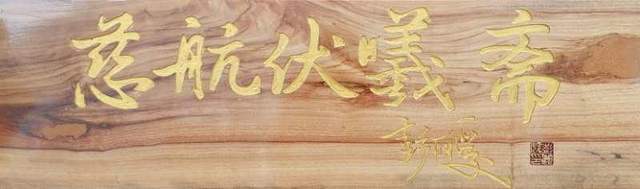 慈航伏羲斋